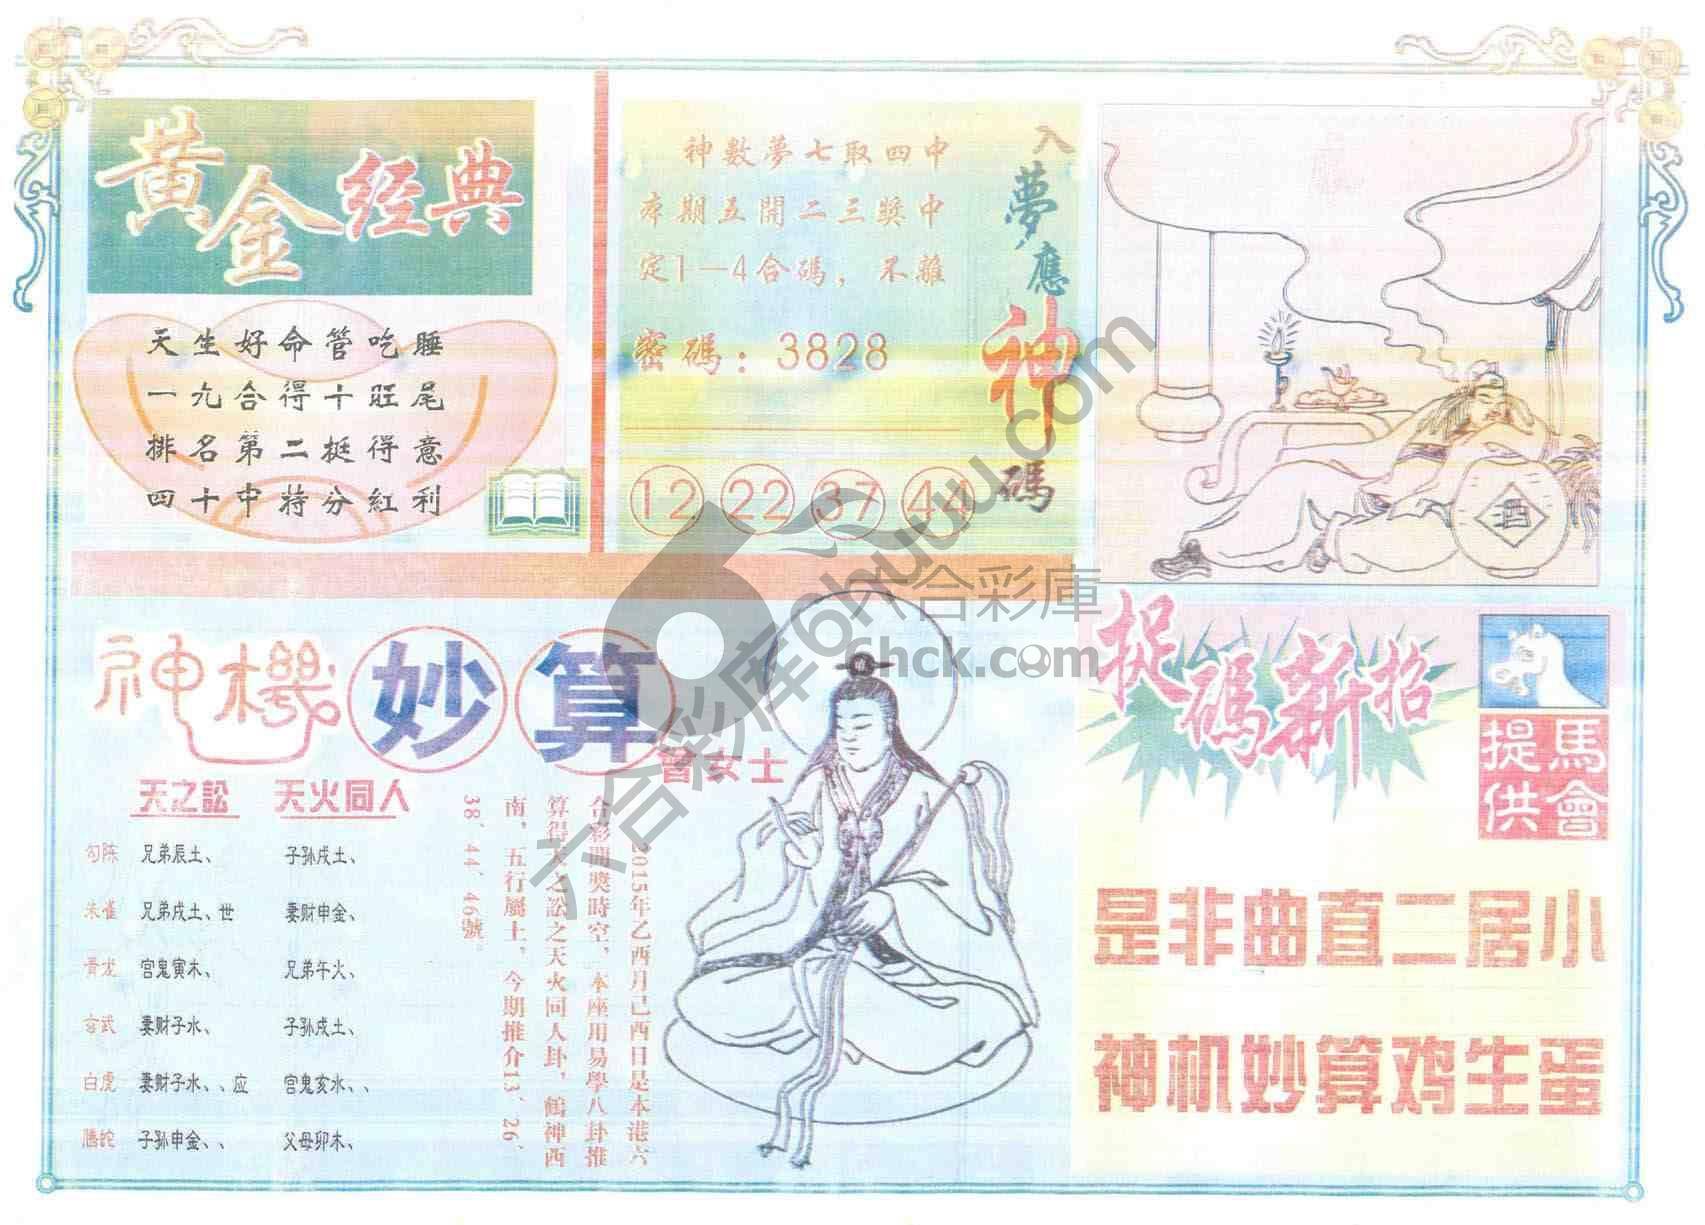 黃金经典
天生好命管吃睡
一九合得十旺尾
排名第二挺得意
四十中特分紅利
神數夢七取四中
本期五開二三獎中
定1—4合碼，不離
密碼：3828
12 22 37 44
入夢應神碼
酒
神機妙算
曾女士
天之訟 天火同人
勾陈 兄弟辰土、 子孙戌土、
朱雀 兄弟戌土、世 妻财申金、
青龙 官鬼寅木、 兄弟午火、
玄武 妻财子水、 子孙戌土、
白虎 妻财子水、、应 官鬼亥水、、
螣蛇 子孙申金、、 父母卯木、
2015年乙酉月己酉日是本港六
合彩開獎時空，本座用易學八卦推
算得天之訟之天火同人卦，鶴神西
南，五行屬土，今期推介13、26、
38、44、46號。
捉碼新招
馬會提供
是非曲直二居小
神机妙算鸡生蛋
六合彩库6huuu.com
六合彩庫
6hck.com